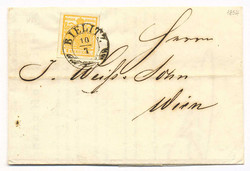 1852
BIELITZ
10
Herrn
J. Weiß & Sohn
Wien